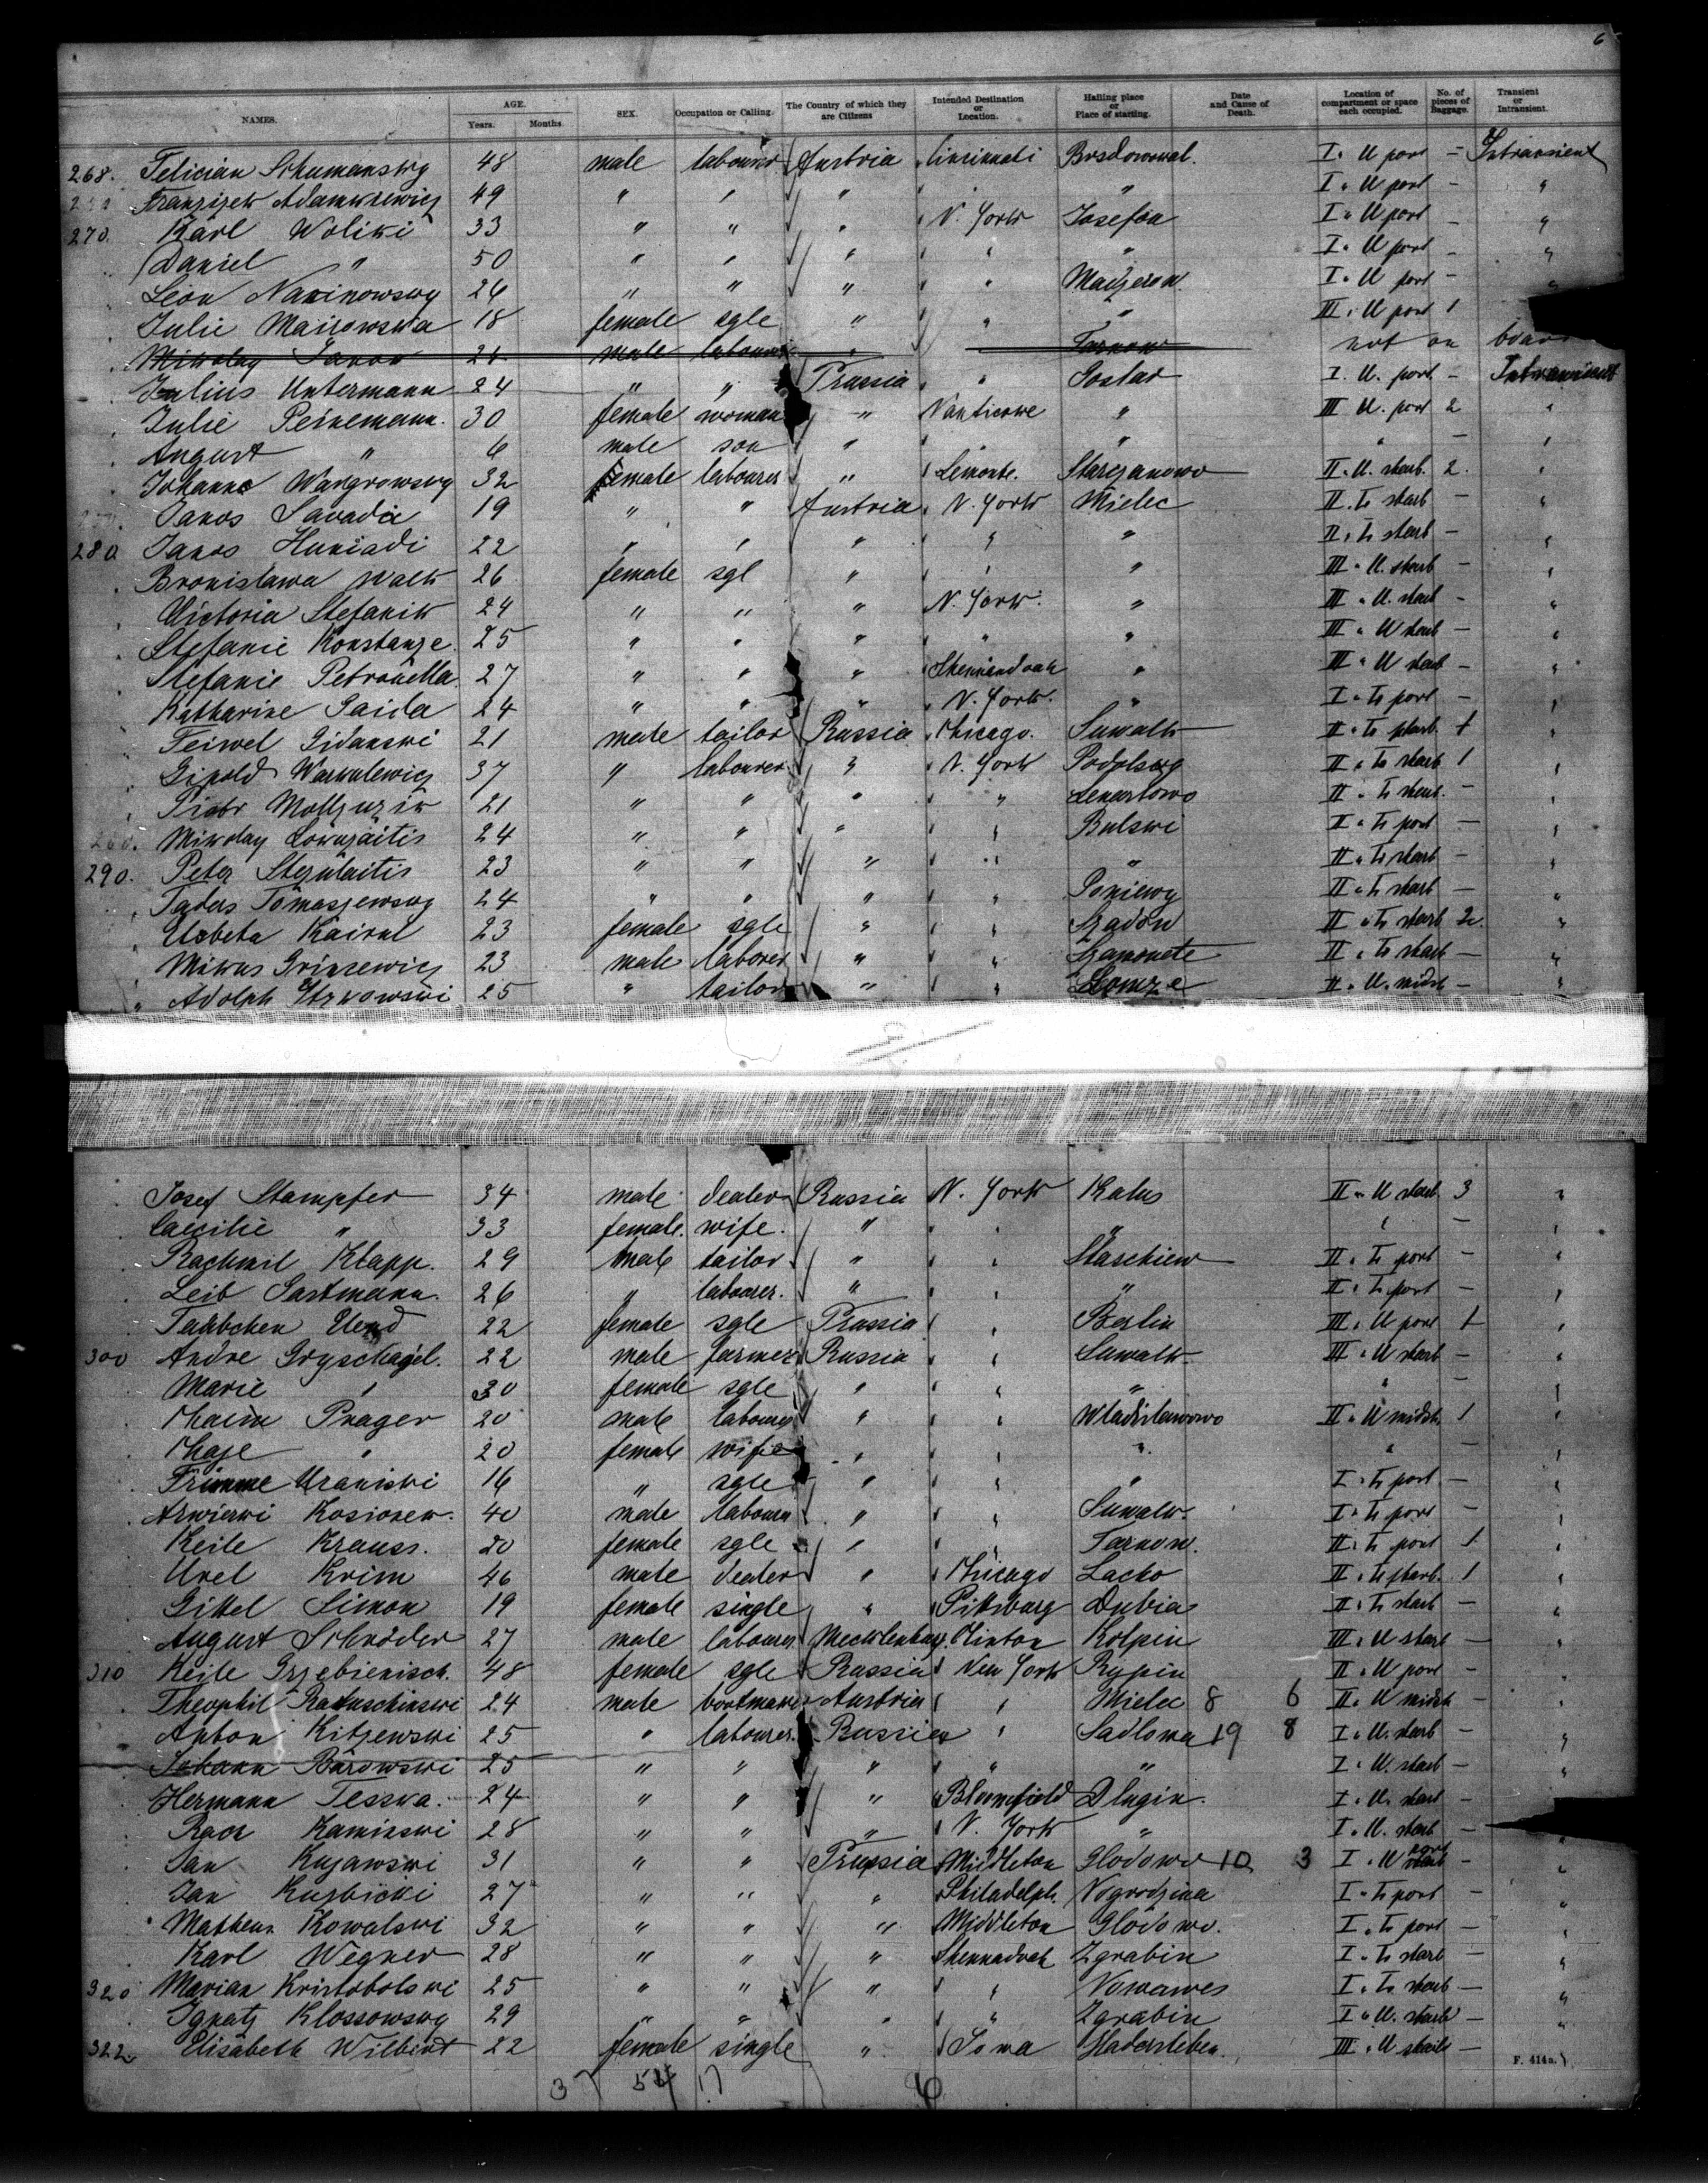 6
NAMES. AGE. Years. Months. SEX. Occupation or Calling. The Country of which they are Citizens Intended Destination or Location. Hailing place or Place of starting. Date and Cause of Death. Location of compartment or space each occupied. No. of pieces of Baggage. Transient or Intransient.
268. Felician Schumansky 48 male labourer Austria Cincinnati I. U port - Intransient
49 " " " " " I " U port - "
270. Karl Woliki 33 " " " N. York Josefon I " U port - "
Daniel " 50 " " " " " I " U port - "
Leon 26 " " " " I " U port - "
Julie 18 female sgle " " " III " U port 1
Mikolay Janow 24 male labourer " Tarnow not on board
Julius Untermann 24 " " Prussia " Sostar I. U. port - Intransient
Julie Peinemann. 30 female woman " Nanticoke " III U. port 2 "
August " 6 male son " " " " - "
Johann Wangrowsky 32 female labourer " Lemonte. II " U. starb. 2. "
Janos Savadi 19 " " Austria N. York Mielec II. Ts starb - "
280 Janos Huniadi 22 " " " " " II " Ts starb - "
Bronislawa Walk 26 female sgl " " " III " U. starb - "
Victoria Stefanik 24 " " " N. York. " III " U. starb - "
Stefanie Konstanze. 25 " " " " " III " U starb - "
Stefanie Petronella. 27 " " " Shennandoah " III " U starb - "
Katharine Saida 24 " " " N. York. " I " Ts port - "
Feiwel Gidanski 21 male tailor Russia Chicago. Suwalk II " Ts starb. 1 "
37 " labourer " N. York II " Ts starb 1 "
Piotr 21 " " " " II " Ts starb. - "
Mikolay 24 " " " " Bulski II " Ts port - "
290. Peter 23 " " " " " II " Ts starb - "
Tomaszewsky 24 " " " " II " Ts starb - "
Elsbeta 23 female sgle " " Szadow II " Ts starb 2 "
Mikas Grinzewicz 23 male laborer " " II " Ts starb - "
Adolph 25 " tailor " " Lomze II " U. midsh - "
Josef Stampfer 34 male dealer Russia N. York Kalus II " U starb 3 "
Caecilie " 33 female. wife. " " " " - "
Rachmil Klapp. 29 male tailor " " Staschiew II " Ts port - "
Leib Sastmann. 26 " labourer. " " " II " Ts port - "
Taubchen Elend 22 female sgle Prussia " Berlin III " U port 1 "
300 Andre Gryschagel. 22 male farmer Russia " Suwalk III " U starb - "
Marie " 30 female sgle " " " " - "
Chaim Prager 20 male labourer " " Wladislawowo II " U midsh. 1 "
Chaje " 20 female wife " " " " - "
Uraniski 16 " sgle " " " I " Ts port - "
Kosiorek. 40 male labourer " " Suwalk. I " Ts port - "
Keile Krauss. 20 female sgle " " Tarnow. II " Ts port 1 "
Urel Krim 46 male dealer " Chicago Lacko II " Ts starb. 1 "
Gittel Simon 19 female single " Pittsburg Dubia II " Ts starb - "
August Schröder 27 male labourer Mecklenburg. Clinton Kolpin III " U starb - "
310 Keile Grzebienisch. 48 female sgle Russia New York Rypin II " U port - "
Theophil Ratuschinski 24 male Austria " Mielec 8 6 II " U midsh - "
Anton Kitzewski 25 " labourer. Russia " Sadlowa 19 8 I " U. starb - "
Johann Barowski 25 " " " " " I " U. starb - "
Hermann Tesska. 24 " " " Bloomfield Dlugin. I " U. starb - "
Kaminski 28 " " " N. York " I " U. starb - "
Jan Kujawski 31 " " Prussia Middleton Glodowo 10 3 I " U port - "
Jan Kusbicki 27 " " " Philadelph. Nogrodzina I " Ts port - "
Matheus Kowalski 32 " " " Middleton Glodowo. I " Ts port - "
Karl Wegner 28 " " " Shennadoah Zgrabin I " Ts starb - "
320 Marian Kristobolski 25 " " " " Nowawes I " Ts starb - "
Ignatz Klossowsky 29 " " " " Zgrabin I " U. starb - "
322. Elisabeth Wilbirt 22 female single " Iowa Hadersleben. III " U starb - "
F. 414a.
37 54 17 6